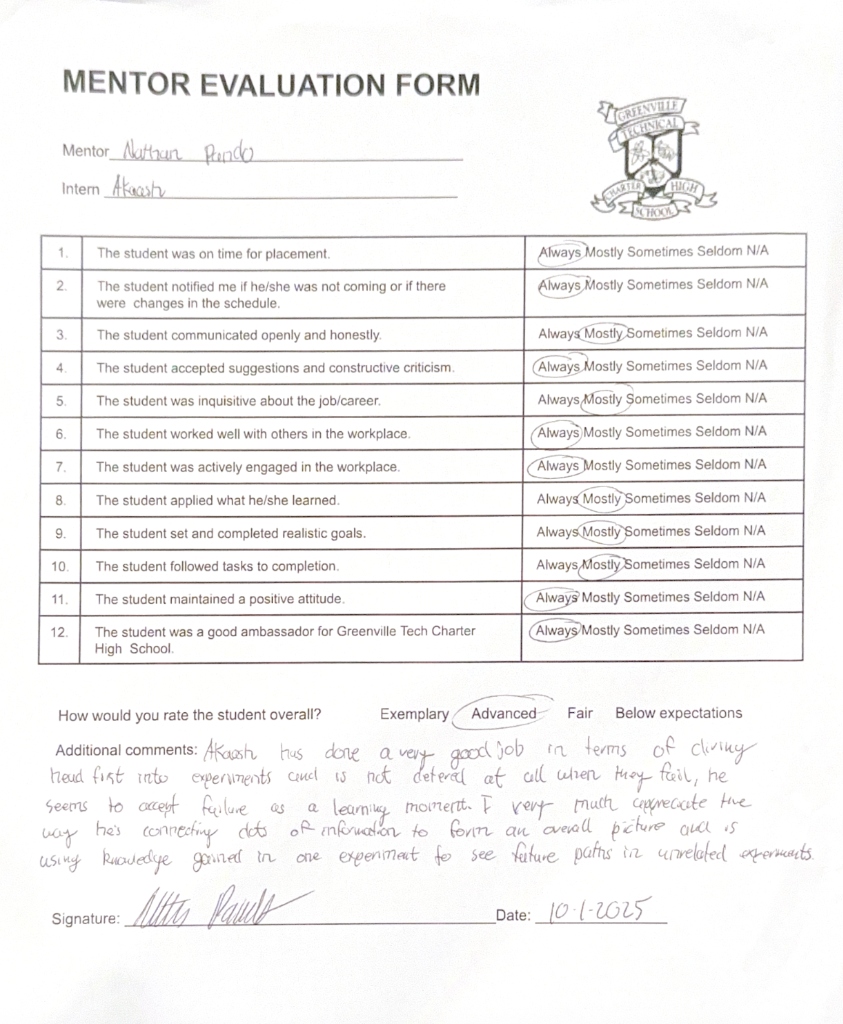 MENTOR EVALUATION FORM
GREENVILLE
TECHNICAL
CHARTER HIGH
SCHOOL
Mentor Nathan
Intern Akaash
1. The student was on time for placement. Always Mostly Sometimes Seldom N/A
2. The student notified me if he/she was not coming or if there Always Mostly Sometimes Seldom N/A
were changes in the schedule.
3. The student communicated openly and honestly. Always Mostly Sometimes Seldom N/A
4. The student accepted suggestions and constructive criticism. Always Mostly Sometimes Seldom N/A
5. The student was inquisitive about the job/career. Always Mostly Sometimes Seldom N/A
6. The student worked well with others in the workplace. Always Mostly Sometimes Seldom N/A
7. The student was actively engaged in the workplace. Always Mostly Sometimes Seldom N/A
8. The student applied what he/she learned. Always Mostly Sometimes Seldom N/A
9. The student set and completed realistic goals. Always Mostly Sometimes Seldom N/A
10. The student followed tasks to completion. Always Mostly Sometimes Seldom N/A
11. The student maintained a positive attitude. Always Mostly Sometimes Seldom N/A
12. The student was a good ambassador for Greenville Tech Charter Always Mostly Sometimes Seldom N/A
High School.
How would you rate the student overall? Exemplary Advanced Fair Below expectations
Additional comments: Akaash has done a very good job in terms of diving
head first into experiments and is not detered at all when they fail, he
seems to accept failure as a learning moment. I very much appreciate the
way he's connecting dots of information to form an overall picture and is
using knowledge gained in one experiment to see future paths in unrelated experiments.
Signature: Date: 10-1-2025